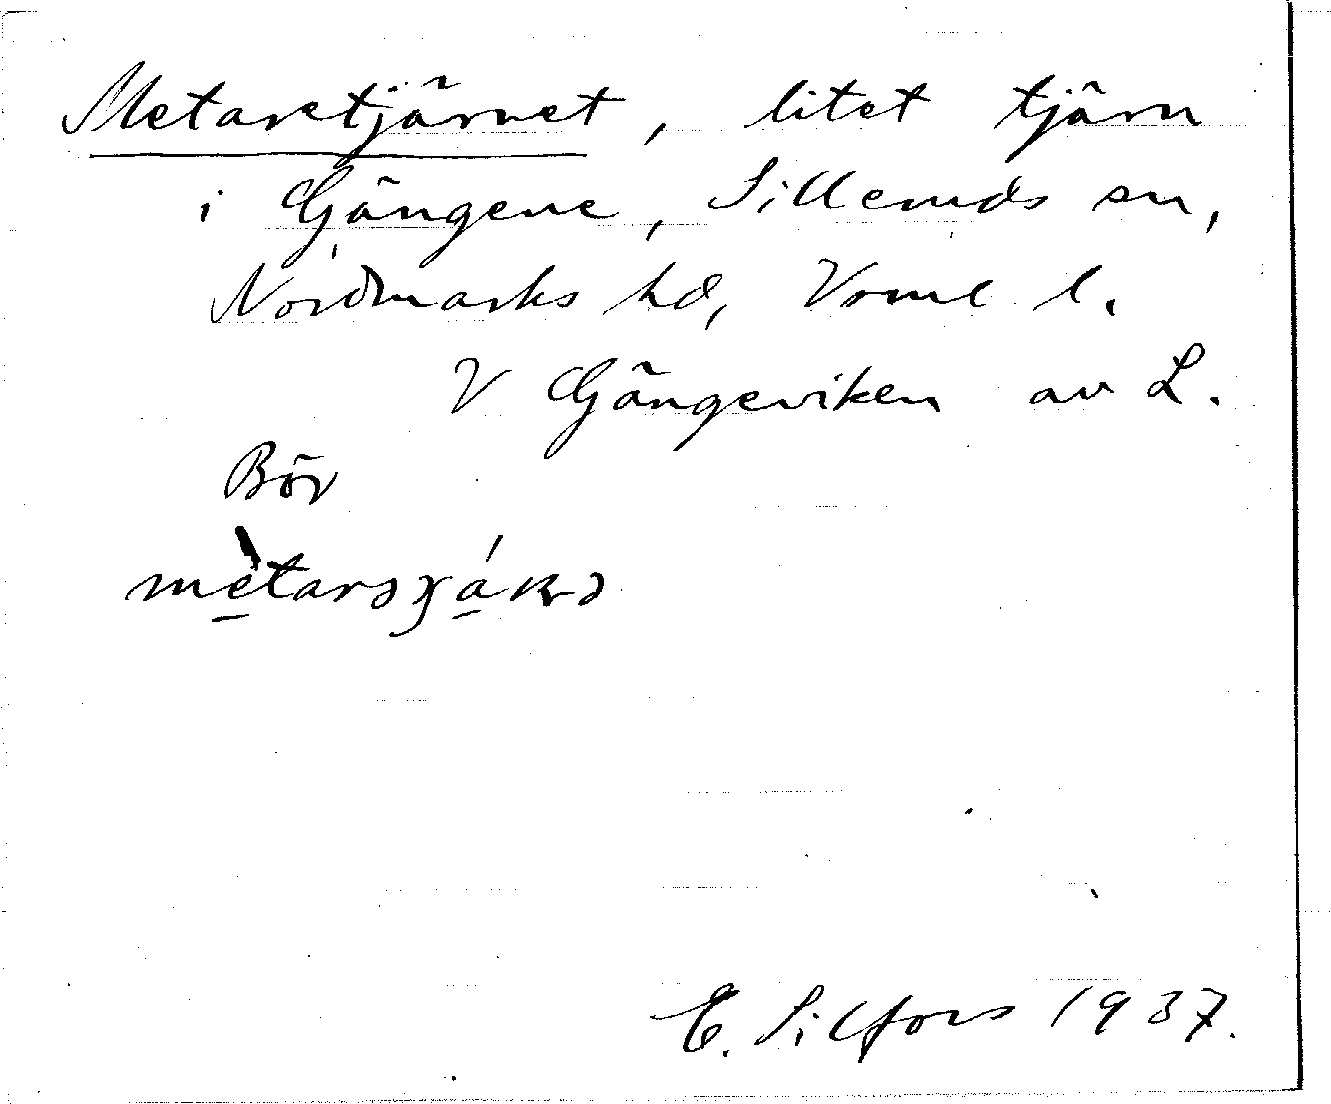 Metaretjärnet, litet tjärn
i Gängene, Silleruds sn,
Nordmarks hd, Vrml l.
V Gängeviken av L.
Bör
E. Silfors 1937.